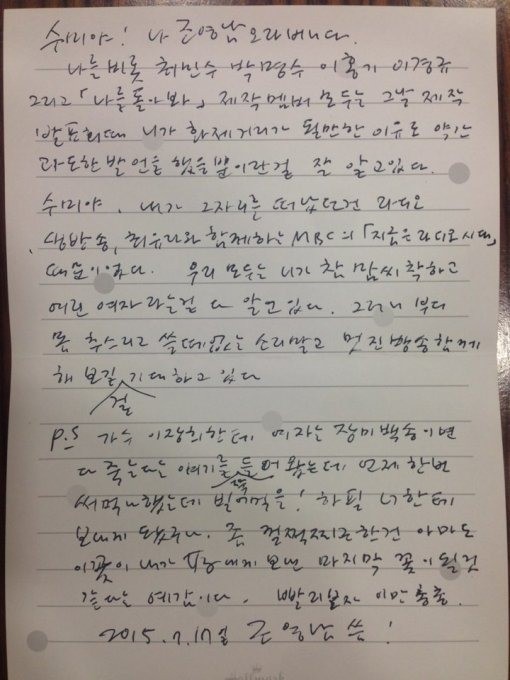 수미야! 나 조영남오라버니다.
나를비롯 최민수 박명수 이홍기 이경규
그리고「나를돌아봐」 제작멤버 모두는 그날 제작
발표회때 니가 화제거리가 될만한 이유로 약간
과도한발언을 했을뿐이란걸 잘 알고있다.
수미야. 내가 그자리를 떠났던건 라디오
생방송, 최유라와 함께하는 MBC의「지금은라디오시대」
때문이었다. 우리 모두는 니가 참 맘씨 착하고
여린 여자라는걸 다 알고있다. 그러니 부디
몸 추스리고 쓸떼없는 소리말고 멋진방송함께
해 보길 기대하고 있다
걸
p.s 가수 이장희한테 여자는 장미백송이면
다 죽는다는 얘기를 들어 왔는데 언제 한번
써먹나했는데 빌어먹을! 하필 너한테
보내게 됐구나. 좀 껄쩍찌근한건 아마도
이꽃이 내가 보낸 마지막 꽃이될것
같다는 예감이다. 빨리보자 이만총총.
2015.7.17일 조영남 씀!